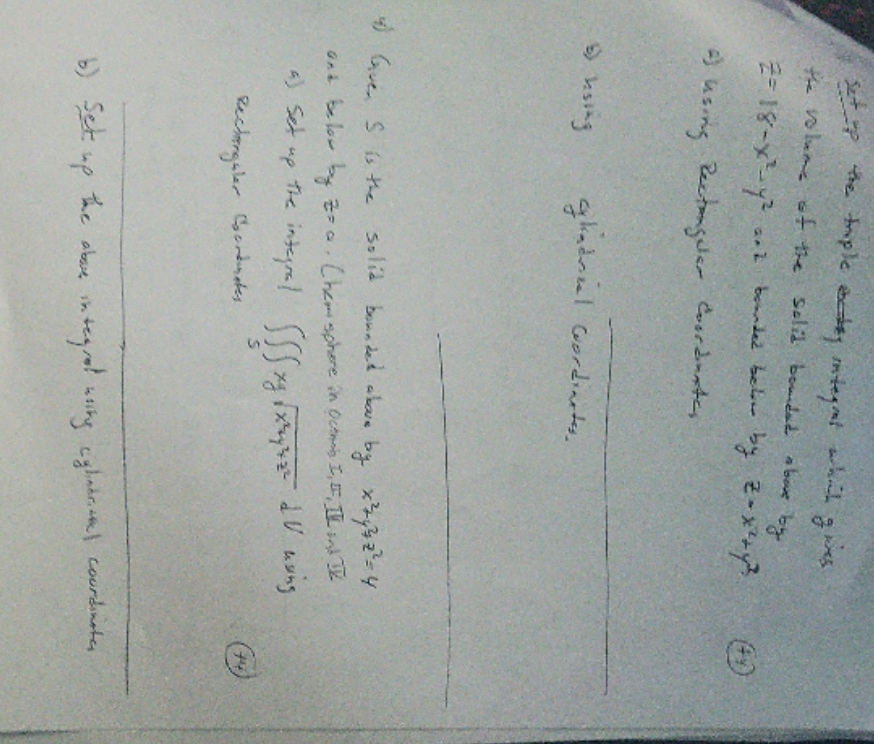 Set up the triple integral which gives
the volume of the solid bounded above by
z = 18 - x² - y² and bounded below by z = x² + y²
a) using Rectangular Coordinates
(+4)
b) using cylindrical Coordinates.
4) Given S is the solid bounded above by x²+y²+z²=4
and below by z=0. (hemisphere in octants I, II, III and IV
a) Set up the integral ∭ₛ xy√x²+y²+z² dV using
Rectangular Coordinates
(+4)
b) Set up the above integral using cylindrical coordinates